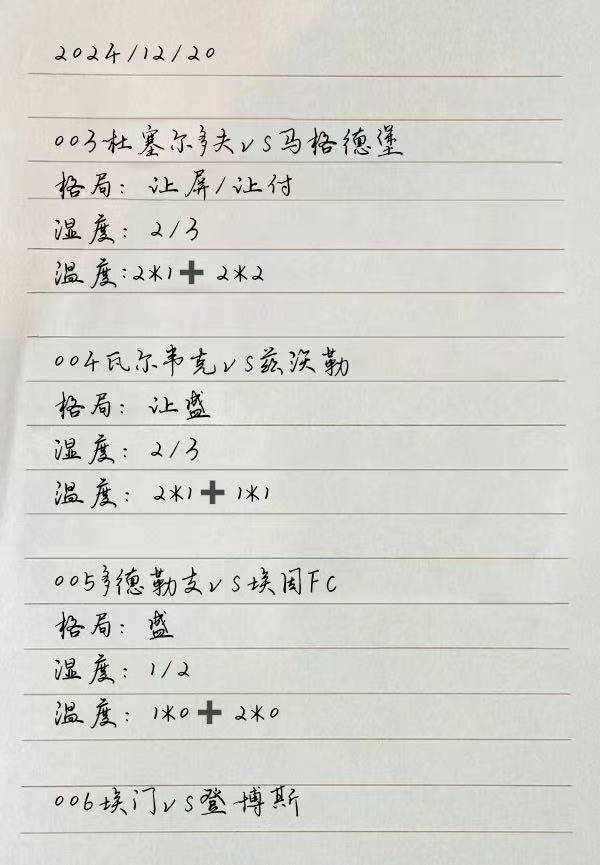 2024/12/20
003杜塞尔多夫vs马格德堡
格局: 让屏/让付
湿度: 2/3
温度:2*1➕ 2*2
004瓦尔韦克vs兹沃勒
格局: 让盛
湿度: 2/3
温度: 2*1➕ 1*1
005多德勒支vs埃因FC
格局: 盛
湿度: 1/2
温度: 1*0➕ 2*0
006埃门vs登博斯